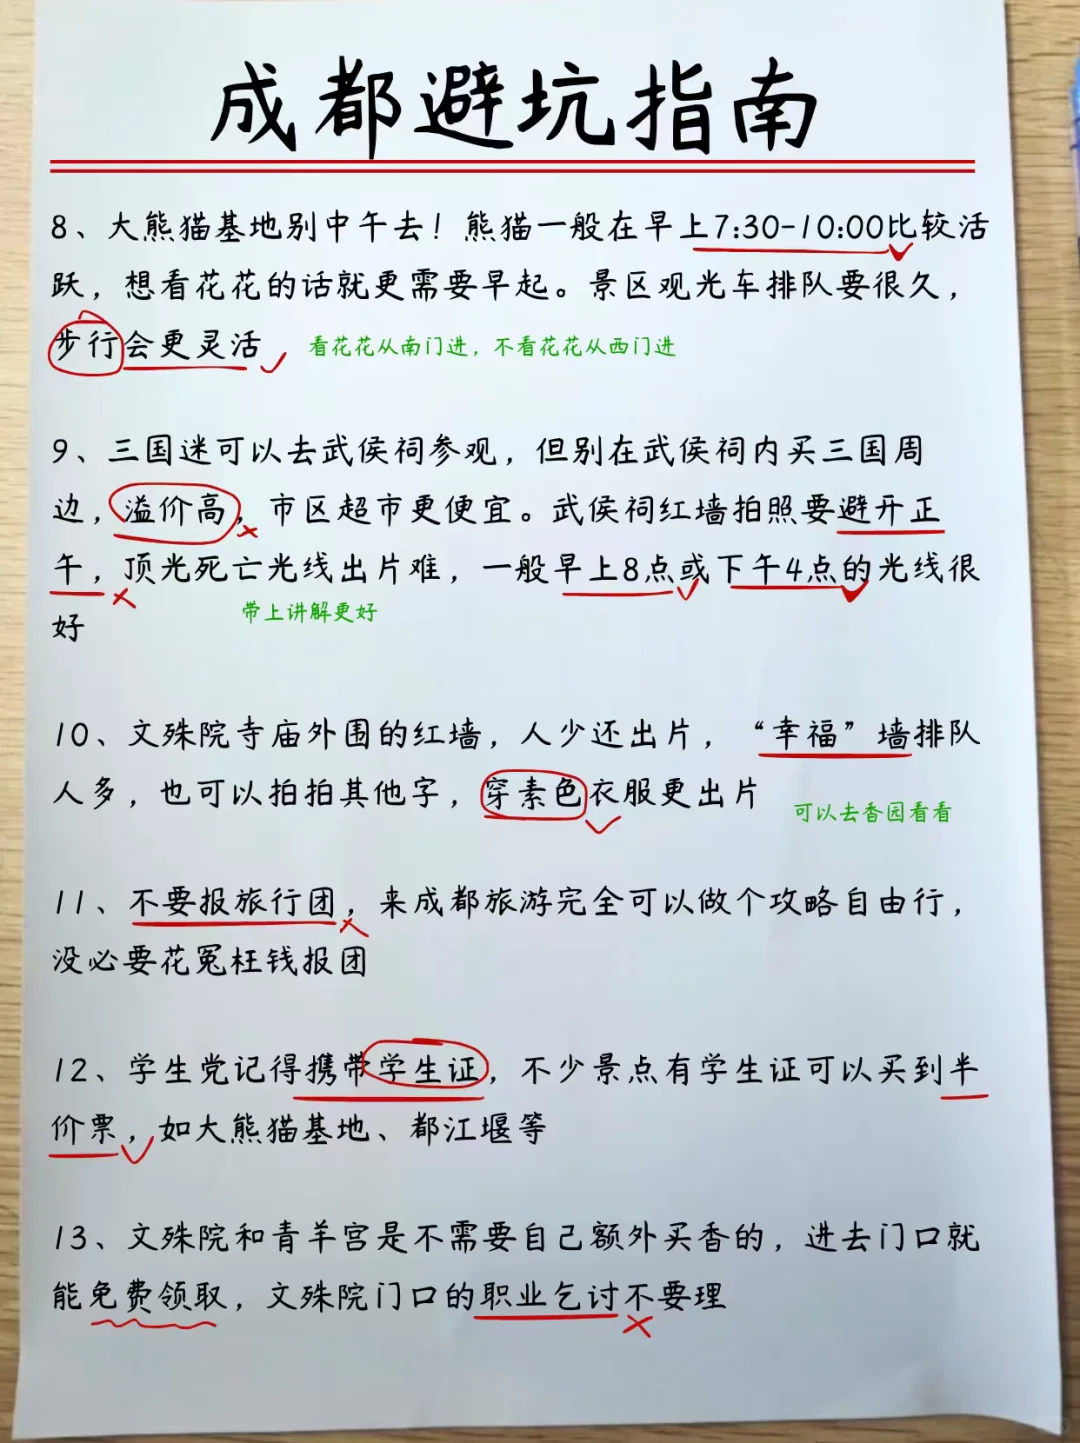 成都避坑指南
8、大熊猫基地别中午去！熊猫一般在早上7:30-10:00比较活
跃，想看花花的话就更需要早起。景区观光车排队要很久，
步行会更灵活
看花花从南门进，不看花花从西门进
9、三国迷可以去武侯祠参观，但别在武侯祠内买三国周
边，溢价高，市区超市更便宜。武侯祠红墙拍照要避开正
午，顶光死亡光线出片难，一般早上8点或下午4点的光线很
好
带上讲解更好
10、文殊院寺庙外围的红墙，人少还出片，“幸福”墙排队
人多，也可以拍拍其他字，穿素色衣服更出片
可以去香园看看
11、不要报旅行团，来成都旅游完全可以做个攻略自由行，
没必要花冤枉钱报团
12、学生党记得携带学生证，不少景点有学生证可以买到半
价票，如大熊猫基地、都江堰等
13、文殊院和青羊宫是不需要自己额外买香的，进去门口就
能免费领取，文殊院门口的职业乞讨不要理